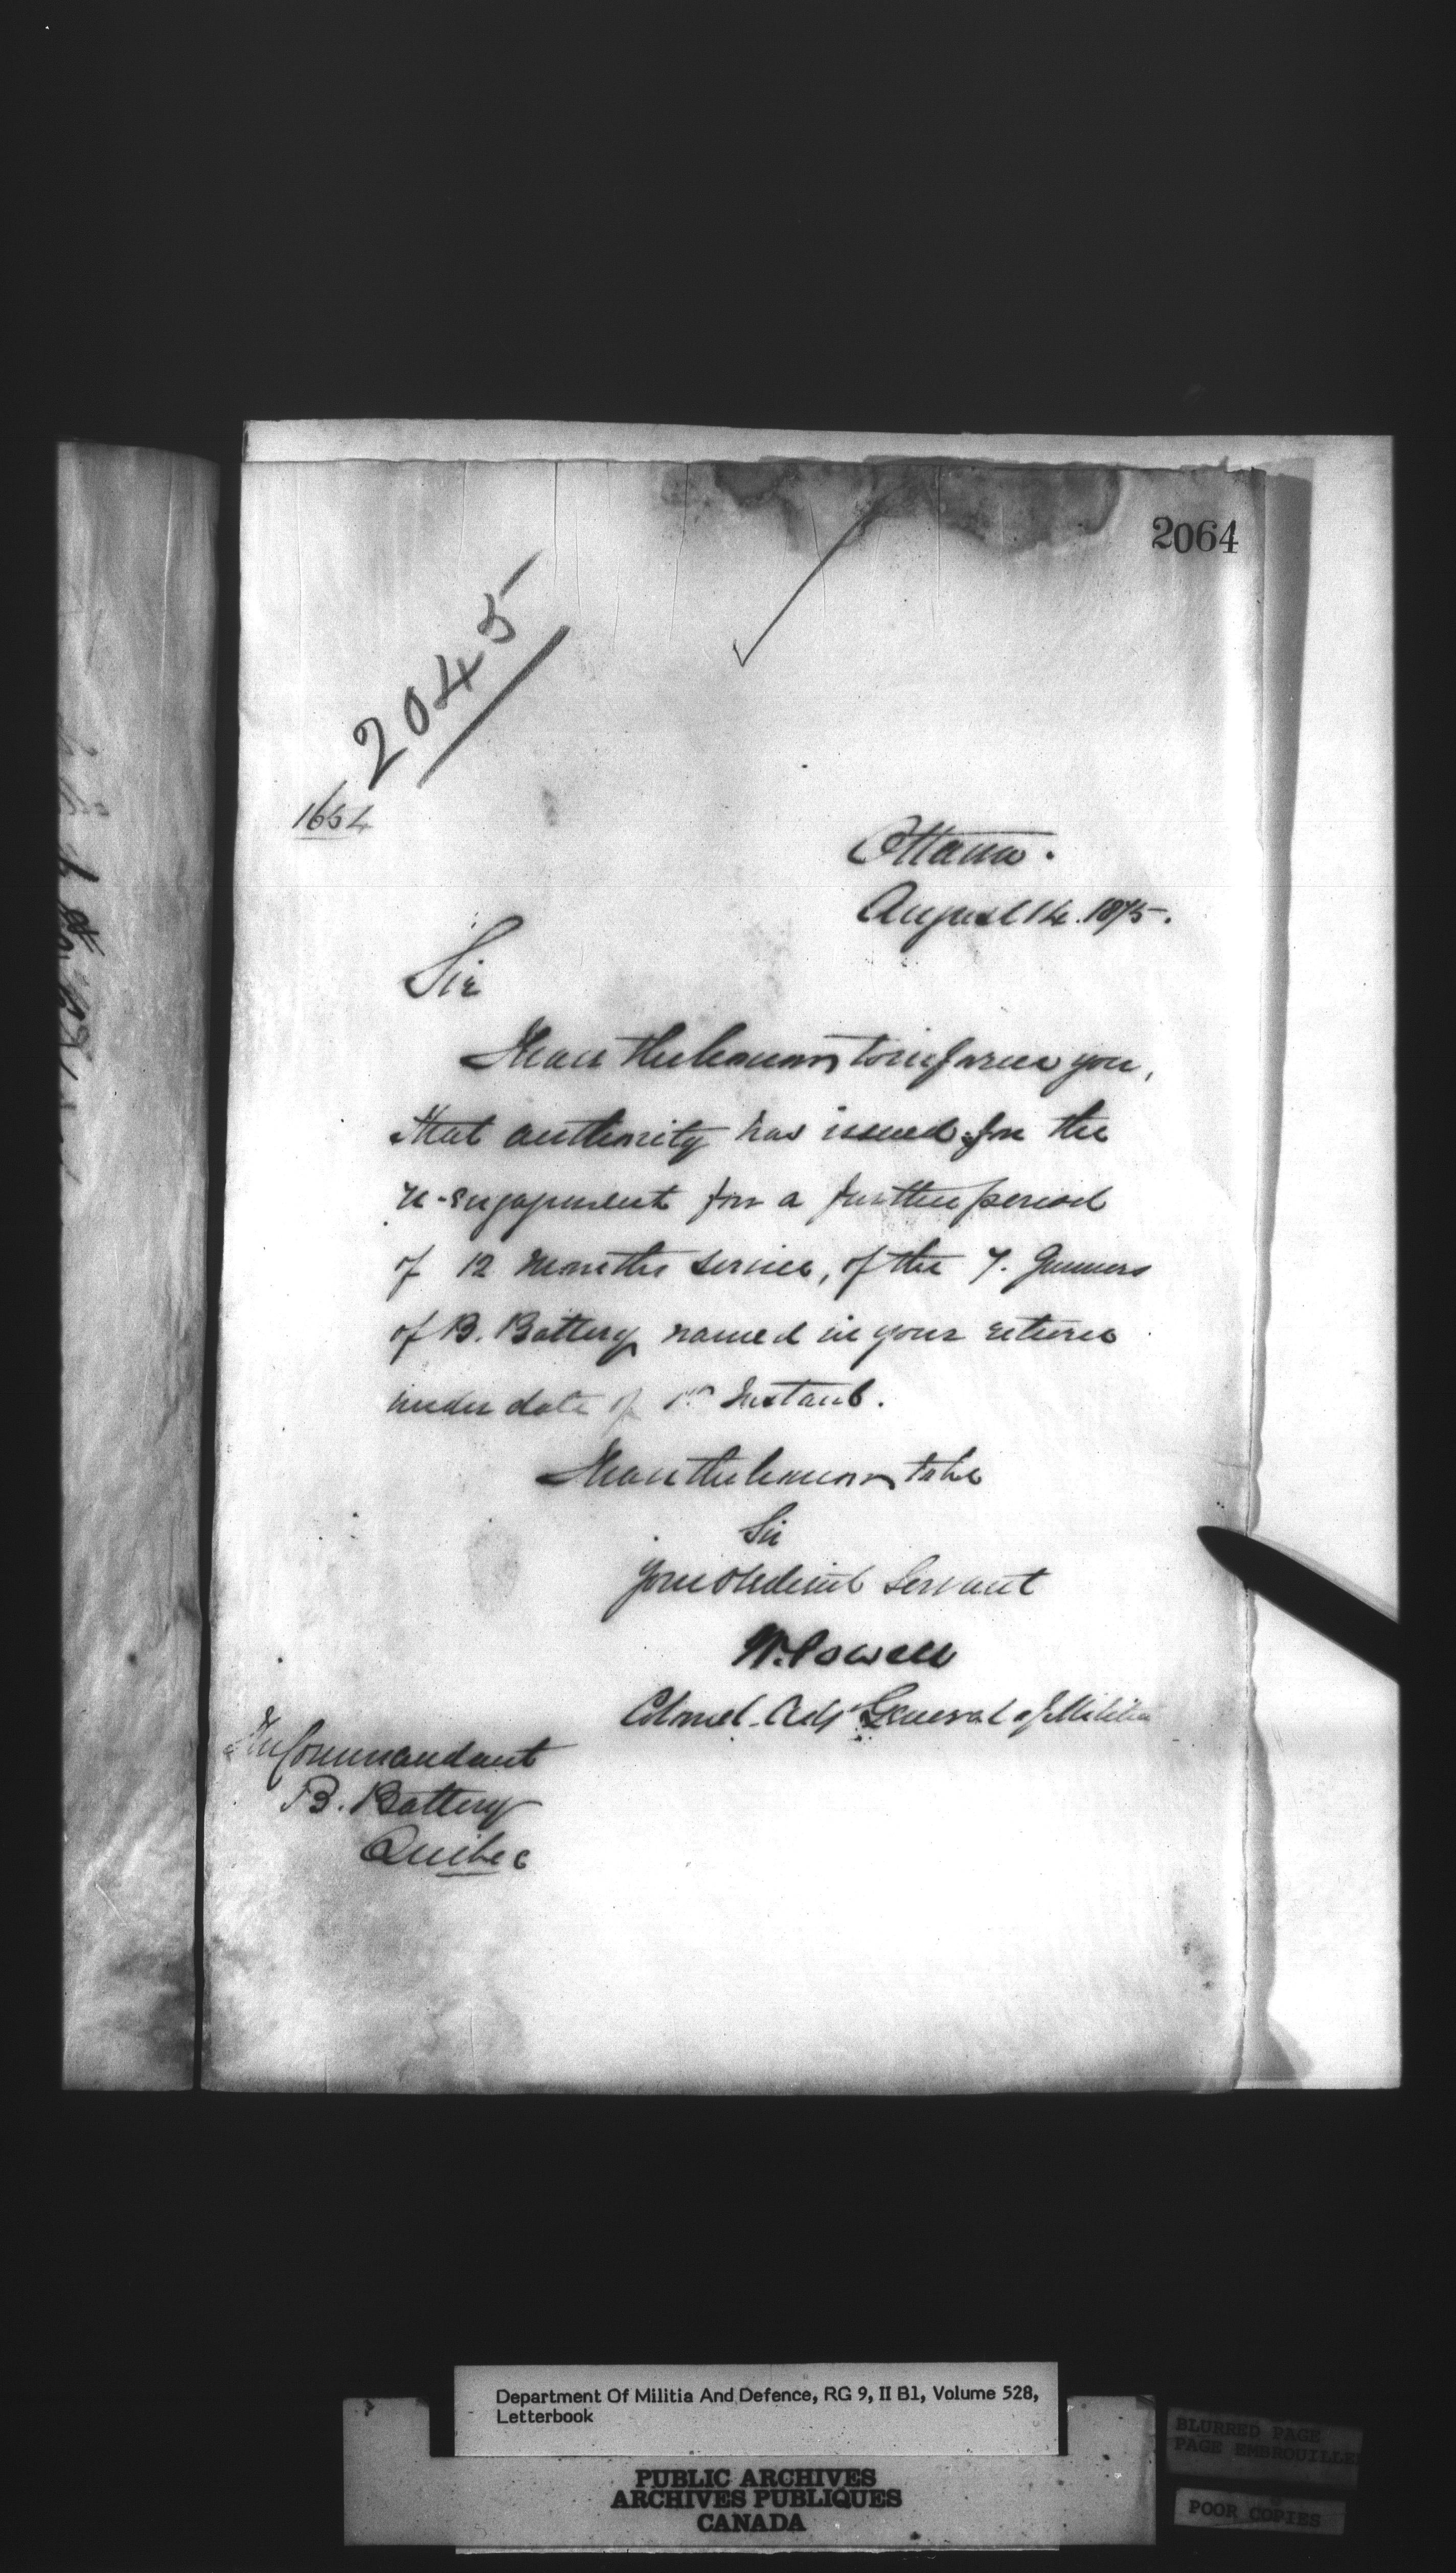 2064
2045
Ottawa.
August 14. 1875.
Sir
I have the honour to inform you,
that authority has issued for the
re-engagement for a further period
of 12 months service, of the 7. Gunners
of B. Battery named in your return
under date of Instant.
I have the honour to be
Sir
Your obedient Servant
W. Powell
Colonel. Adjt General of Militia
The Commandant
B. Battery
Quebec
Department Of Militia And Defence, RG 9, II B1, Volume 528,
Letterbook
PUBLIC ARCHIVES
ARCHIVES PUBLIQUES
CANADA
BLURRED PAGE
PAGE EMBROUILLE
POOR COPIES